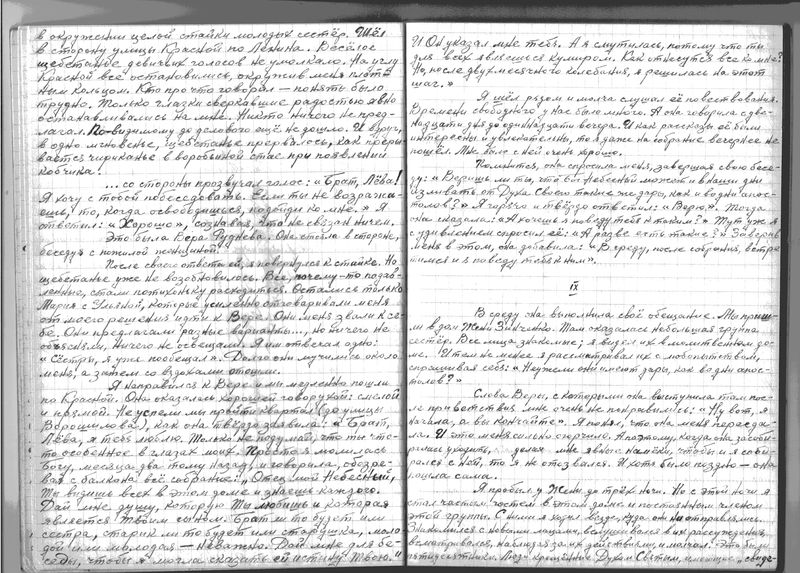 в окружении целой стайки молодых сестёр. Шёл
в сторону улицы Красной по Ленина. Весёлое
щебетание девичьих голосов не умолкало. На углу
Красной все остановились, окружив меня плот-
ным кольцом. Кто про что говорил — понять было
трудно. Только глазки сверкавшие радостью явно
останавливались на мне. Никто ничего не пред-
лагал. По-видимому до делового ещё не дошло. И вдруг,
в одно мгновенье, щебетанье прервалось, как преры-
вается чириканье в воробьиной стае при появлении
кобчика!
... со стороны прозвучал голос: „Брат, Лёва!
Я хочу с тобой побеседовать. Если ты не возража-
ешь, то, когда освободишься, подойди ко мне." Я
ответил: „Хорошо", сознавая, что не связан ничем.
Это была Вера Руднева. Она стояла в стороне,
беседуя с пожилой женщиной.
После своего ответа ей, я повернулся к стайке. Но
щебетанье уже не возобновилось. Все, почему-то подав-
ленные, стали потихоньку расходиться. Остались только
Мария с Ульяной, которые усиленно отговаривали меня
от моего решения идти к Вере. Они меня звали к се-
бе. Они предлагали разные варианты..., но ничего не
объясняли, ничего не освещали. Я им отвечал одно:
„Сёстры, я уже пообещал". Долго они мучились около
меня, а затем со вздохами отошли.
Я направился к Вере и мы медленно пошли
по Красной. Она оказалась хорошей говоруньей: смелой
и прямой. Не успели мы пройти квартал (до улицы
Ворошилова), как она твёрдо заявила: „Брат,
Лёва, я тебя люблю. Только не подумай, что ты что-
то особенное в глазах моих. Просто я молилась
Богу, месяца два тому назад, и говорила, обозре-
вая с балкона всё собрание: „Отец мой Небесный,
Ты видишь всех в этом доме и знаешь каждого.
Дай мне душу, которую Ты любишь и которая
является Твоим сыном. Брат ли то будет или
сестра, старик ли то будет или старушка, моло-
дой или молодая — неважно. Дай мне для бе-
седы, чтобы я могла сказать ей истину Твою."
И Он указал мне тебя. А я смутилась, потому что ты
для всех являешься кумиром. Как отнесутся все ко мне?
Но, после двухмесячного колебания, я решилась на этот
шаг."
Я шёл рядом и молча слушал её повествования.
Времени свободного у нас было много. А она говорила с две-
надцати дня до одиннадцати вечера. И как рассказы её были
интересны и увлекательны, то я даже на собрание вечернее не
пошёл. Мне было с ней очень хорошо.
Помнится, она спросила меня, завершая свою бесе-
ду: „Веришь ли ты, что Бог Небесный может и в наши дни
изливать от Духа Своего такие же дары, как и во дни апос-
толов?" Я горячо и твёрдо ответил: „Верю". Тогда
она сказала: „А хочешь я поведу тебя к таким?" Тут уж я
с удивлением спросил её: „А разве есть такие?" Заверив
меня в этом, она добавила: „В среду, после собрания, встре-
тимся и я поведу тебя к ним".
IX
В среду она выполнила своё обещание. Мы приш-
ли в дом Жени Зинченко. Там оказалась небольшая группа
сестёр. Все лица знакомые; я видел их в молитвенном до-
ме. И тем не менее я рассматривал их с любопытством,
спрашивая себя: „Неужели они имеют дары, как во дни апос-
толов?"
Слова Веры, с которыми она выступила там пос-
ле приветствия мне очень не понравились: „Ну вот, я
начала, а вы кончайте". Я понял, что она меня переда-
ла. И это меня сильно огорчило. И поэтому, когда она засоби-
ралась уходить, делая мне явные намёки, чтобы и я соби-
рался с ней, то я не отозвался. И хотя было поздно — она
пошла сама.
Я пробыл у Жени до трёх ночи. Но с этой ночи я
стал частым гостем в этом доме и постоянным членом
этой группы. С ними я ходил везде, куда они ни отправлялись.
Знакомился с новыми лицами, вслушивался в их рассуждения,
всматривался, наблюдая за их действиями и молчал. Это были
пятидесятники. Люди крещённые Духом Святым, имеющие „свиде-